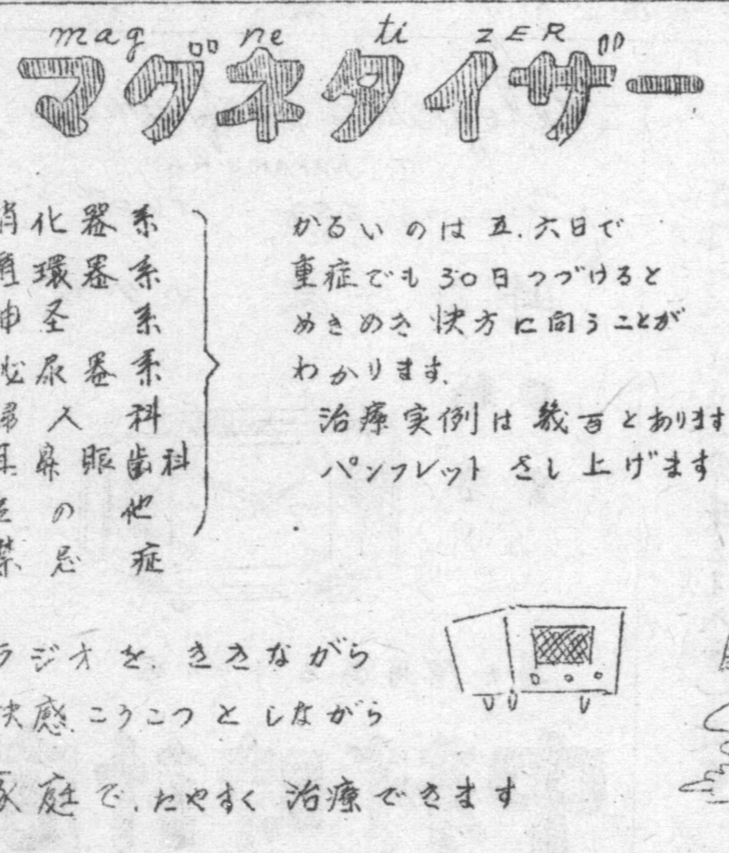 magnetiZER
マグネタイザー
消化器系
循環器系
神圣系
泌尿器系
婦人科
耳鼻眼歯科
其の他
禁忌症
かるいのは五、六日で
重症でも30日つづけると
めきめき快方に向うことが
わかります。
治療実例は幾百とあります
パンフレットさし上げます
ラジオをききながら
快感こうこつとしながら
家庭で、たやすく治療できます